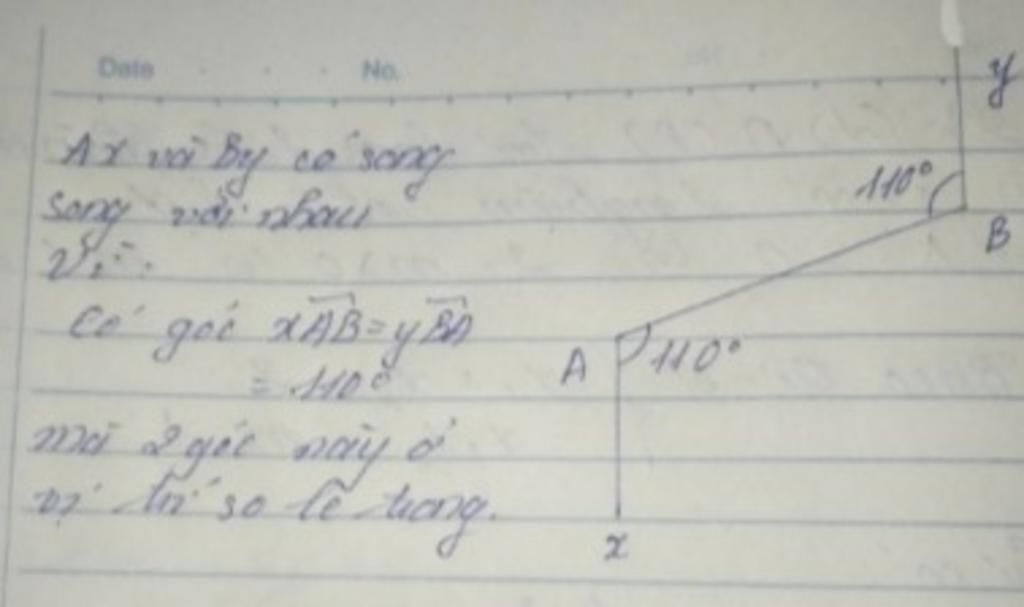 Date No.
y
Ax và By có song
110°
song với nhau
B
Vì:
Có góc xAB = yBA
A 110°
= 110°
mà 2 góc này ở
vị trí so le trong.
x